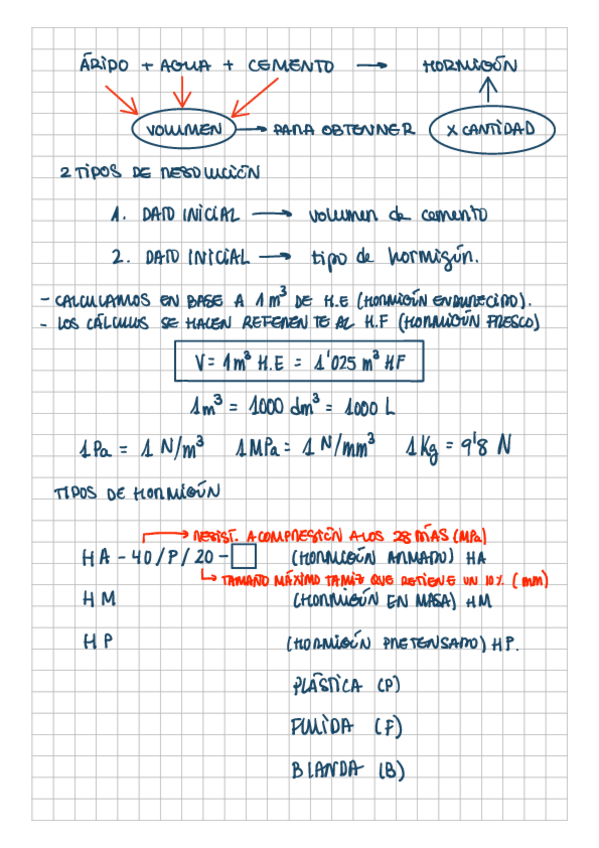 ÁRIDO + AGUA + CEMENTO → HORMIGÓN
VOLUMEN → PARA OBTENNER X CANTIDAD
2 TIPOS DE RESOLUCIÓN
1. DATO INICIAL → volumen de cemento
2. DATO INICIAL → tipo de hormigón.
- CALCULAMOS EN BASE A 1m³ DE H.E (HORMIGÓN ENDURECIDO).
- LOS CÁLCULOS SE HACEN REFERENTE AL H.F (HORMIGÓN FRESCO)
V = 1m³ H.E = 1'025 m³ HF
1m³ = 1000 dm³ = 1000 L
1Pa = 1 N/m³ 1MPa = 1 N/mm³ 1Kg = 9'8 N
TIPOS DE HORMIGÓN
RESIST. A COMPRESIÓN A LOS 28 DÍAS (MPa)
HA - 40/P/20 - □ (HORMIGÓN ARMADO) HA
TAMAÑO MÁXIMO TAMIZ QUE RETIENE UN 10% (mm)
HM (HORMIGÓN EN MASA) HM
HP (HORMIGÓN PRETENSADO) HP.
PLÁSTICA (P)
FLUIDA (F)
BLANDA (B)